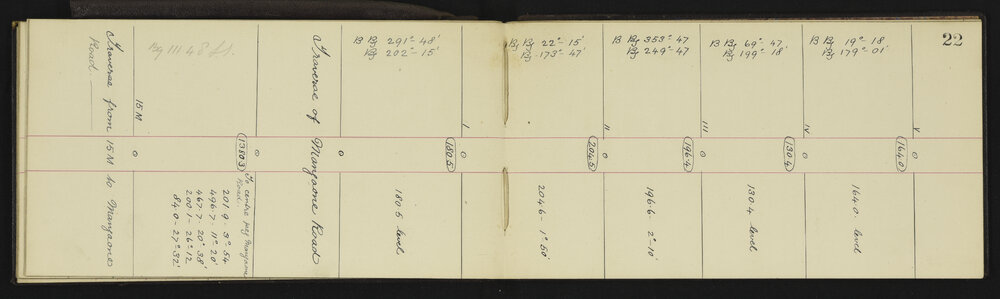 22
Traverse from 15M to Mangaone
Road.
15M
To centre peg Mangaone
Road
201.9 - 3°-54
496.7 - 11°-20'
467.7 - 20°-38'
200.1 - 26°-12
84.0 - 27°-32'
1380.3
Traverse of Mangaone Road
B Bg 291°-48'
Bg 202°-15'
180.5
180.5 level
I.
Bg Bg 22°-15'
Bg 173°-47'
204.5
204.6 - 1°-50'
II
B Bg 353°-47
Bg 249°-47
196.4
196.6 - 2°-10'
III
B Bg 69°-47
Bg 199°-18'
130.4
130.4 level
IV
B Bg 19°-18
Bg 179°-01'
164.0
164.0 level
V